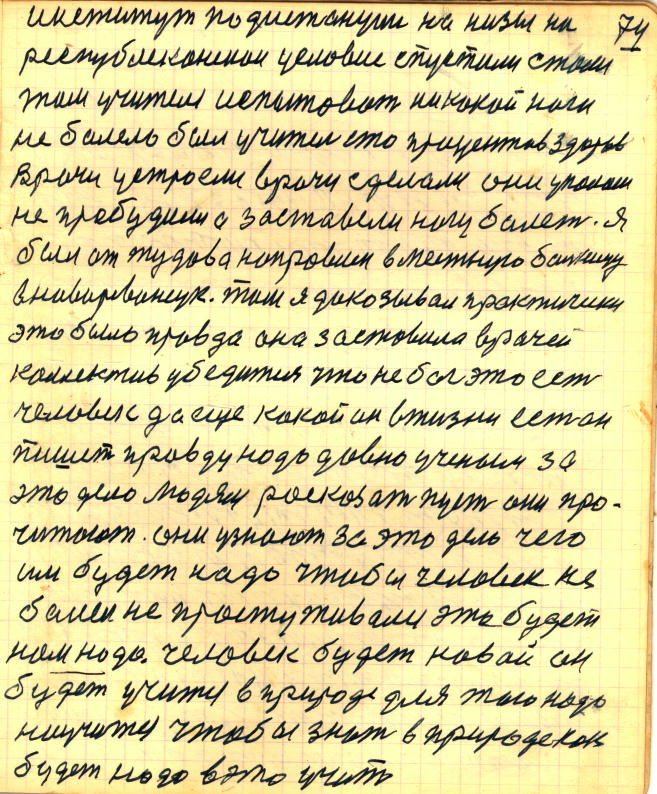 74
институт подистанции на низы на
республеконскои условие спустили стали
там учител испытоват никокой ноги
не болело был учител сто процентов здоров
врачи устроели врачи сделали они
не пробудили а заставели ногу болет. Я
был от тудова направлен в местную болницу
в новаровонсук. там я докозывал практически
это было провда она застовила врачей
коллектив убедится что не бог это ест
человек да еще какой он в жизни ест он
пишет провду надо довно ученым за
это дело людям росказат пуст они про-
читают. они узнают за это дело чего
им будет надо чтобы человек не
болел не простуживали это будет
нам надо. человек будет новай он
будет учител в природе для того надо
научител чтобы знат в природе как
будет надо в это учить